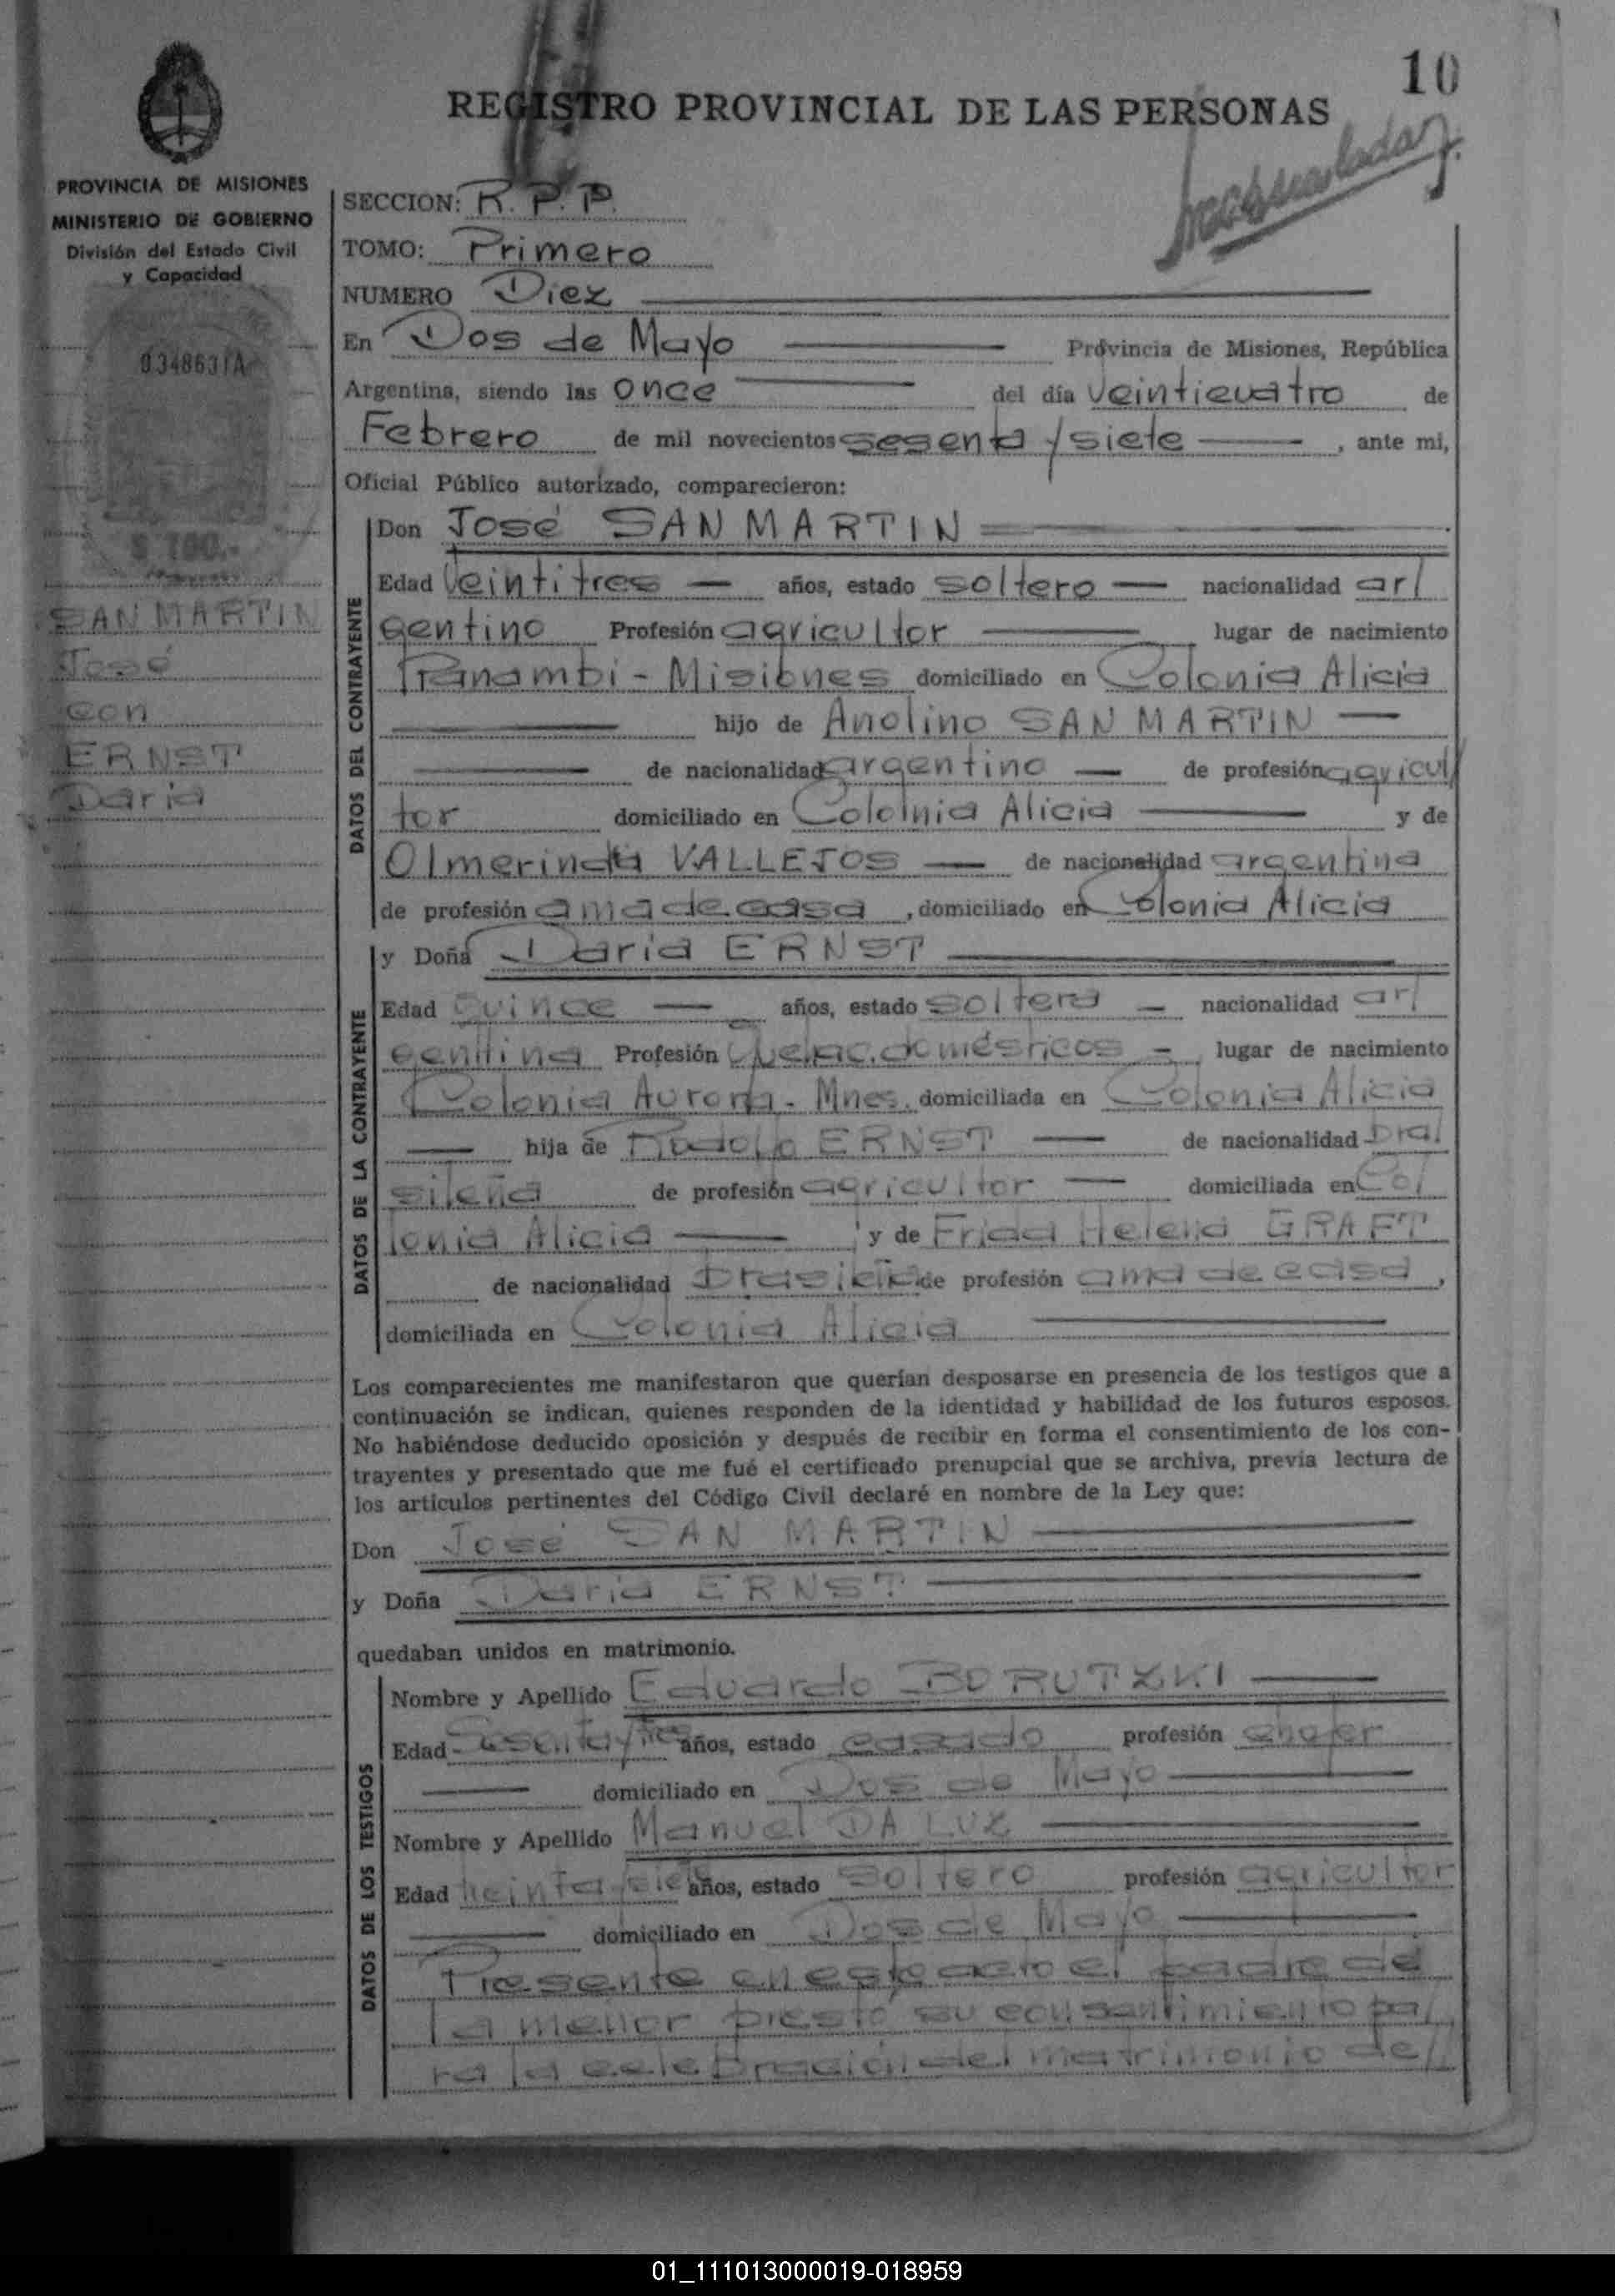 10
REGISTRO PROVINCIAL DE LAS PERSONAS
PROVINCIA DE MISIONES
MINISTERIO DE GOBIERNO
División del Estado Civil
y Capacidad
0348631A
$ 100.-
SAN MARTIN
José
con
ERNST
Daria
SECCION: R. P. P.
TOMO: Primero
NUMERO Diez
En Dos de Mayo Provincia de Misiones, República
Argentina, siendo las once del día veinticuatro de
Febrero de mil novecientos sesenta y siete, ante mi,
Oficial Público autorizado, comparecieron:
DATOS DEL CONTRAYENTE
Don José SAN MARTIN
Edad veintitres años, estado soltero nacionalidad ar/
gentino Profesión agricultor lugar de nacimiento
Panambi - Misiones domiciliado en Colonia Alicia
hijo de SAN MARTIN
de nacionalidad argentino de profesión agricul/
tor domiciliado en Colonia Alicia y de
Olmerinda VALLEJOS de nacionalidad argentina
de profesión ama de casa, domiciliado en Colonia Alicia
DATOS DE LA CONTRAYENTE
y Doña Daria ERNST
Edad quince años, estado soltera nacionalidad ar/
gentina Profesión quehac. domésticos lugar de nacimiento
Colonia Aurora - Mnes. domiciliada en Colonia Alicia
hija de Rodolfo ERNST de nacionalidad bra/
sileña de profesión agricultor domiciliada en Co/
lonia Alicia y de Frida Helena GRAFT
de nacionalidad brasileña de profesión ama de casa,
domiciliada en Colonia Alicia
Los comparecientes me manifestaron que querían desposarse en presencia de los testigos que a
continuación se indican, quienes responden de la identidad y habilidad de los futuros esposos.
No habiéndose deducido oposición y después de recibir en forma el consentimiento de los con-
trayentes y presentado que me fué el certificado prenupcial que se archiva, previa lectura de
los artículos pertinentes del Código Civil declaré en nombre de la Ley que:
Don José SAN MARTIN
y Doña Daria ERNST
quedaban unidos en matrimonio.
DATOS DE LOS TESTIGOS
Nombre y Apellido Eduardo BORUTZKI
Edad años, estado casado profesión chofer
domiciliado en Dos de Mayo
Nombre y Apellido Manuel DA LUZ
Edad años, estado soltero profesión agricultor
domiciliado en Dos de Mayo
Presente en este acto el padre de
la menor prestó su consentimiento pa/
ra la celebración del matrimonio de/
01_111013000019-018959